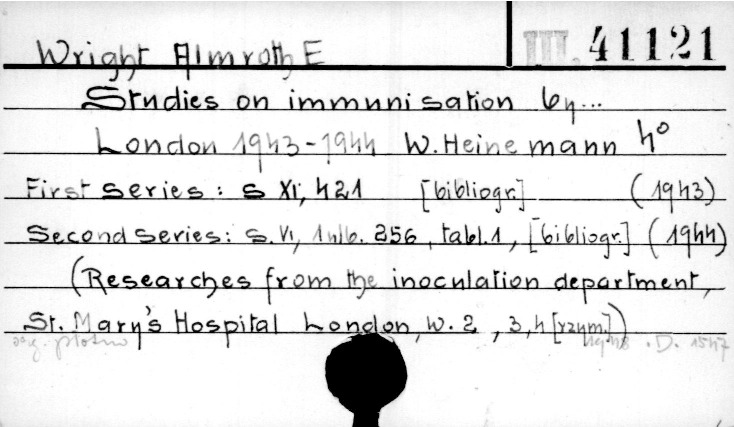 III. 41121
Wright Almroth E
Studies on immunisation by...
London 1943-1944 W. Heinemann 4°
First series: s XI, 421 [bibliogr.] (1943)
Second series: s. VI, 1 nlb. 256, tabl. 1, [bibliogr.] (1944)
(Researches from the inoculation department,
St. Mary's Hospital London, W. 2, 3, 4 [rzym.])
1948 .D. 1547